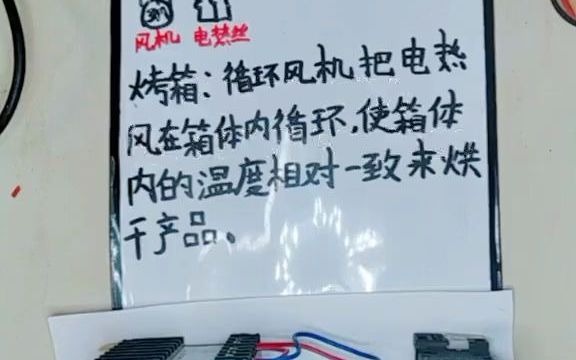 风机 电热丝
烤箱：循环风机把电热
风在箱体内循环，使箱体
内的温度相对一致来烘
干产品。